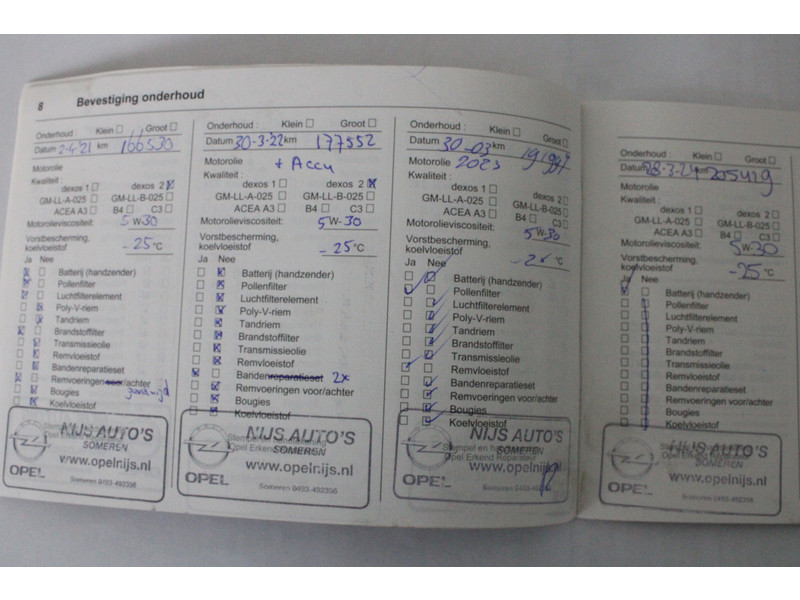 8 Bevestiging onderhoud
Onderhoud : Klein Groot
Datum 2-4-21 km 166530
Motorolie
Kwaliteit :
dexos 1 dexos 2
GM-LL-A-025 GM-LL-B-025
ACEA A3 B4 C3
Motorolieviscositeit: 5 W-30
Vorstbescherming,
koelvloeistof -25 °C
Ja Nee
Batterij (handzender)
Pollenfilter
Luchtfilterelement
Poly-V-riem
Tandriem
Brandstoffilter
Transmissieolie
Remvloeistof
Bandenreparatieset
Remvoeringen voor/achter
Bougies
Koelvloeistof
NIJS AUTO'S
SOMEREN
www.opelnijs.nl
OPEL
Someren 0493-492356
Onderhoud : Klein Groot
Datum 30-3-22 km 177552
Motorolie + Accu
Kwaliteit :
dexos 1 dexos 2
GM-LL-A-025 GM-LL-B-025
ACEA A3 B4 C3
Motorolieviscositeit: 5 W-30
Vorstbescherming,
koelvloeistof -25 °C
Ja Nee
Batterij (handzender)
Pollenfilter
Luchtfilterelement
Poly-V-riem
Tandriem
Brandstoffilter
Transmissieolie
Remvloeistof
Bandenreparatieset 2x
Remvoeringen voor/achter
Bougies
Koelvloeistof
NIJS AUTO'S
SOMEREN
www.opelnijs.nl
OPEL
Someren 0493-492356
Onderhoud : Klein Groot
Datum 30-03 km
Motorolie 2023
Kwaliteit :
dexos 1 dexos 2
GM-LL-A-025 GM-LL-B-025
ACEA A3 B4 C3
Motorolieviscositeit: 5 W-30
Vorstbescherming,
koelvloeistof °C
Ja Nee
Batterij (handzender)
Pollenfilter
Luchtfilterelement
Poly-V-riem
Tandriem
Brandstoffilter
Transmissieolie
Remvloeistof
Bandenreparatieset
Remvoeringen voor/achter
Bougies
Koelvloeistof
NIJS AUTO'S
Stempel en
SOMEREN
Opel Erkend Reparateur
www.opelnijs.nl
OPEL
Someren 0493-492356
Onderhoud : Klein Groot
Datum 28-3-24 km 205419
Motorolie
Kwaliteit :
dexos 1 dexos 2
GM-LL-A-025 GM-LL-B-025
ACEA A3 B4 C3
Motorolieviscositeit: 5 W-30
Vorstbescherming,
koelvloeistof -25 °C
Ja Nee
Batterij (handzender)
Pollenfilter
Luchtfilterelement
Poly-V-riem
Tandriem
Brandstoffilter
Transmissieolie
Remvloeistof
Bandenreparatieset
Remvoeringen voor/achter
Bougies
Koelvloeistof
NIJS AUTO'S
SOMEREN
www.opelnijs.nl
OPEL
Someren 0493-492356